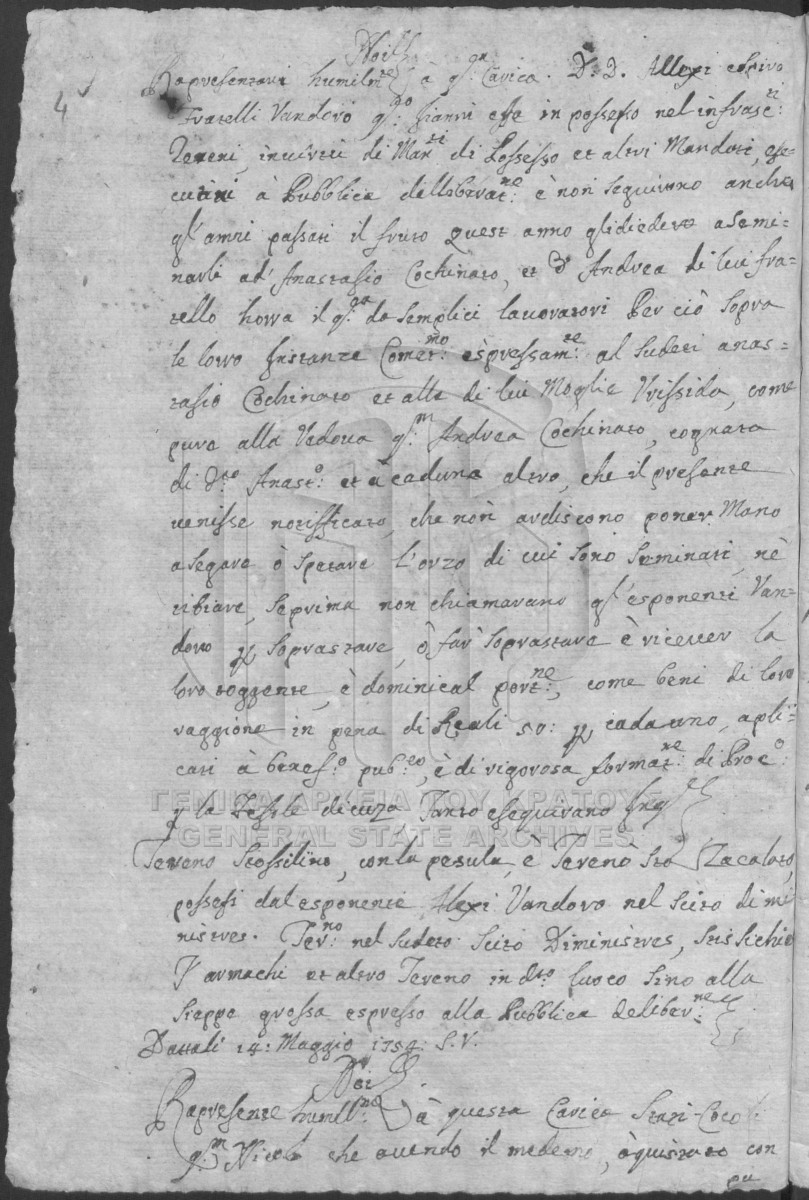 Noi
Rapresentari humilm:te à q:ta Carica. Dr. D. Allexi e Spiro
4
Fratelli Vandoro q:do Gianni esse in possesso nel infrasc:ti
Tereni, invirtù di Man:ti di Possesso et altri Mandati, ese-
cutivi à Pubblica delliberat:ne è non seguirono anche
gl'anni passati il fruto quest anno glidiedero a Semi-
narli ad' Anastasio Cochinato, et Andrea di lui fra-
tello horra il q:da Semplici lavoratori Per ciò Sopra
le loro Instanze Comet:mo espressam:te al Sudeti anas-
tasio Cochinato et alle di lui Moglie Vrissida, come
pure alla Vedova q:m Andrea Cochinato, cognata
di d:to Anast:o et à caduno altro, che il presente
venisse notifficato, che non ardiscono poner Mano
a Segare ò Spetare l'orzo di cui Sono Seminati, nè
tribiare, Se prima non chiamarano gl'esponenti Van-
doro p Soprastare, ò far Soprastare è ricever la
loro toggente, è dominical port:ne, come beni di loro
raggione in pena di Reali 50: p cadauno, apli-
cati à benef:o pub:co, è di rigorosa format:ne di Proc:o
ΓΕΝΙΚΑ ΑΡΧΕΙΑ ΤΟΥ ΚΡΑΤΟΥΣ
GENERAL STATE ARCHIVES
p la Tanto esequirano
Tereno Scossilino, con la pesula, è Terenò Zacaloto,
possessi dal esponente Alexi Vandoro nel Scito di mi
nistres. Ter:no nel Sudeto Scito Diministres,
Farmachi et altro Tereno in d:to luoco Sino alla
Sieppe grossa espresso alla Pubblica deliber:ne
Dattali 14: Maggio 1754: S.V.
Noi
Rapresente humill:ne à questa Carica Stati-Coco
q:m Nicolò che avendo il medemo, àquistato con